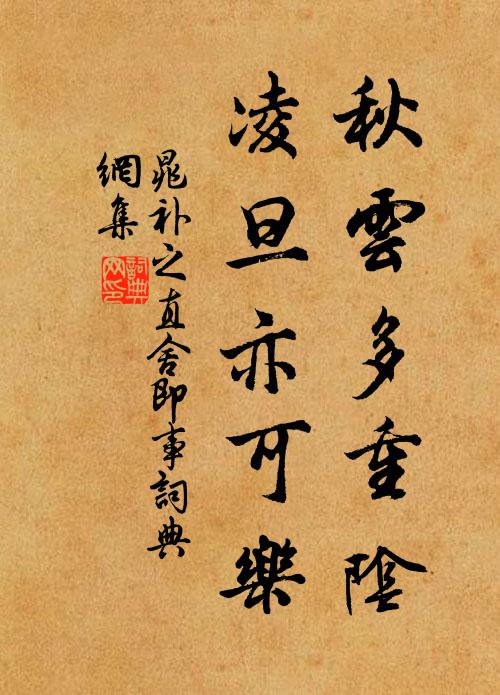 秋雲多重陰
凌旦亦可樂
晁补之直舍即事詞典
網集
詞典網印